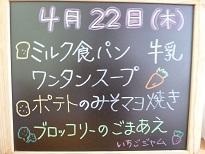 4月22日(木)
ミルク食パン 牛乳
ワンタンスープ
ポテトのみそマヨ焼き
ブロッコリーのごまあえ
いちごジャム